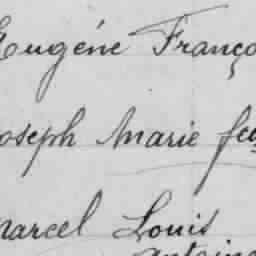 Eugéne Franço
oseph Marie feu
Marcel Louis
antoine